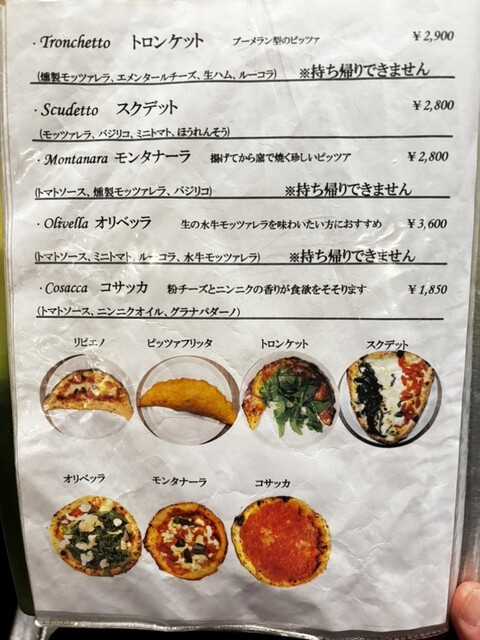 ・Tronchetto トロンケット ブーメラン型のピッツァ ￥2,900
(燻製モッツァレラ、エメンタールチーズ、生ハム、ルーコラ) ※持ち帰りできません
・Scudetto スクデット ￥2,800
(モッツァレラ、バジリコ、ミニトマト、ほうれんそう)
・Montanara モンタナーラ 揚げてから窯で焼く珍しいピッツア ￥2,800
(トマトソース、燻製モッツァレラ、バジリコ) ※持ち帰りできません
・Olivella オリベッラ 生の水牛モッツァレラを味わいたい方におすすめ ￥3,600
(トマトソース、ミニトマト、ルーコラ、水牛モッツァレラ) ※持ち帰りできません
・Cosacca コサッカ 粉チーズとニンニクの香りが食欲をそそります ￥1,850
(トマトソース、ニンニクオイル、グラナパダーノ)
リピエノ ピッツァフリッタ トロンケット スクデット
オリベッラ モンタナーラ コサッカ